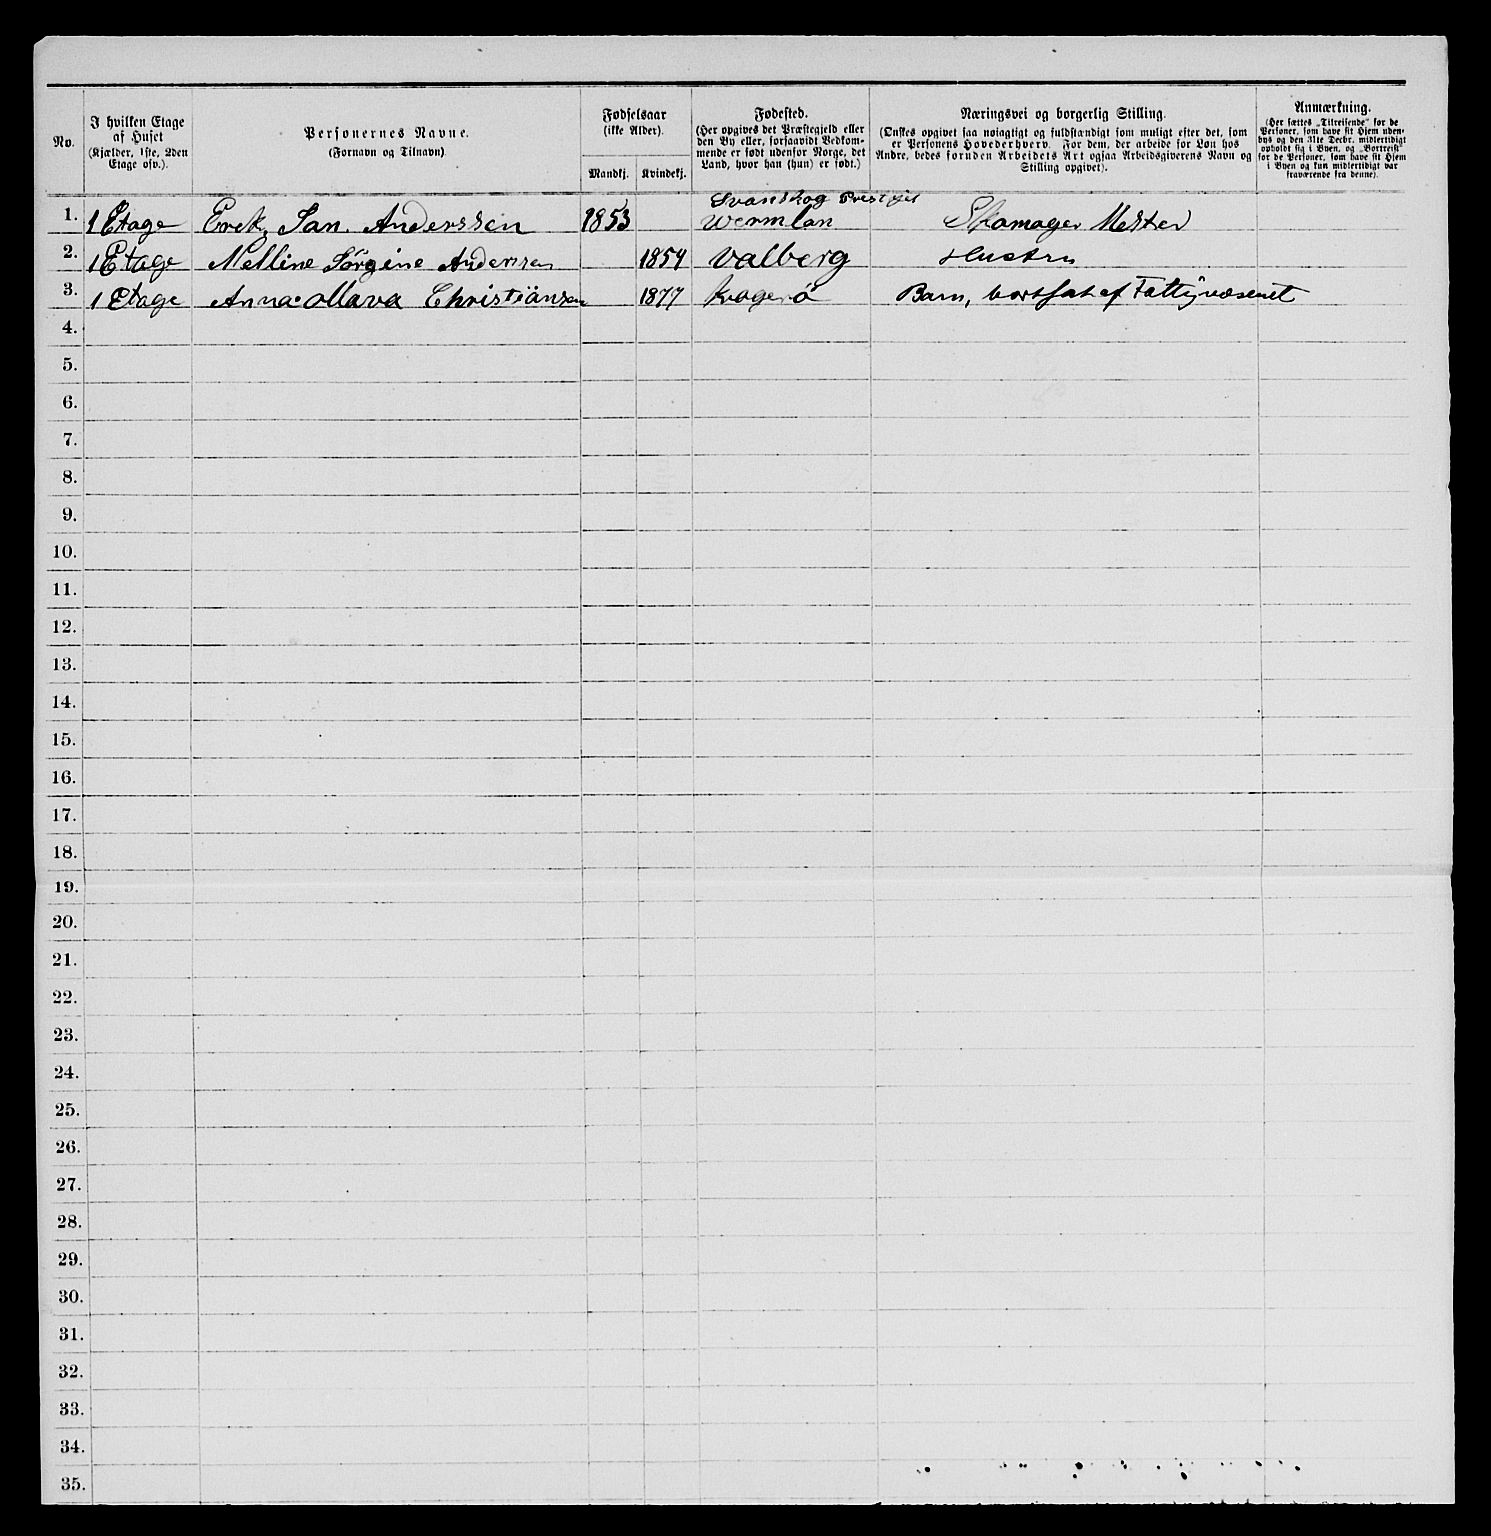 No.
I hvilken Etage
af Huset
(Kjælder, 1ste, 2den
Etage osv.).
Personernes Navne.
(Fornavn og Tilnavn)
Fødselsaar
(ikke Alder).
Mandkj. Kvindekj.
Fødested.
(Her opgives det Præstegjeld eller
den By eller, forsaavidt Vedkom-
mende er født udenfor Norge, det
Land, hvor han (hun) er født.)
Næringsvei og borgerlig Stilling.
(Ønskes opgivet saa nøiagtigt og fuldstændigt som muligt efter det, som
er Personens Hovederhverv. For dem, der arbeide for Løn hos
Andre, bedes foruden Arbeidets Art ogsaa Arbeidsgiverens Navn og
Stilling opgivet).
Anmærkning.
(Her sættes „Tilreisende" for de
Personer, som have sit Hjem uden-
bys og den 31te Decbr. midlertidigt
opholdt sig i Byen, og „Bortreist"
for de Personer, som have sit Hjem
i Byen og kun midlertidigt var
fraværende fra denne).
Svanskog
1. 1 Etage Erek. Jan. Anderssen 1853 Wermlan Skomager Mester
2. 1 Etage Melline Jørgine Anderssen 1854 Valberg Hustru
3. 1 Etage Anna Ollava Christiansen 1877 Kragerö Barn, bortsat af Fattigvæsenet
4.
5.
6.
7.
8.
9.
10.
11.
12.
13.
14.
15.
16.
17.
18.
19.
20.
21.
22.
23.
24.
25.
26.
27.
28.
29.
30.
31.
32.
33.
34.
35.